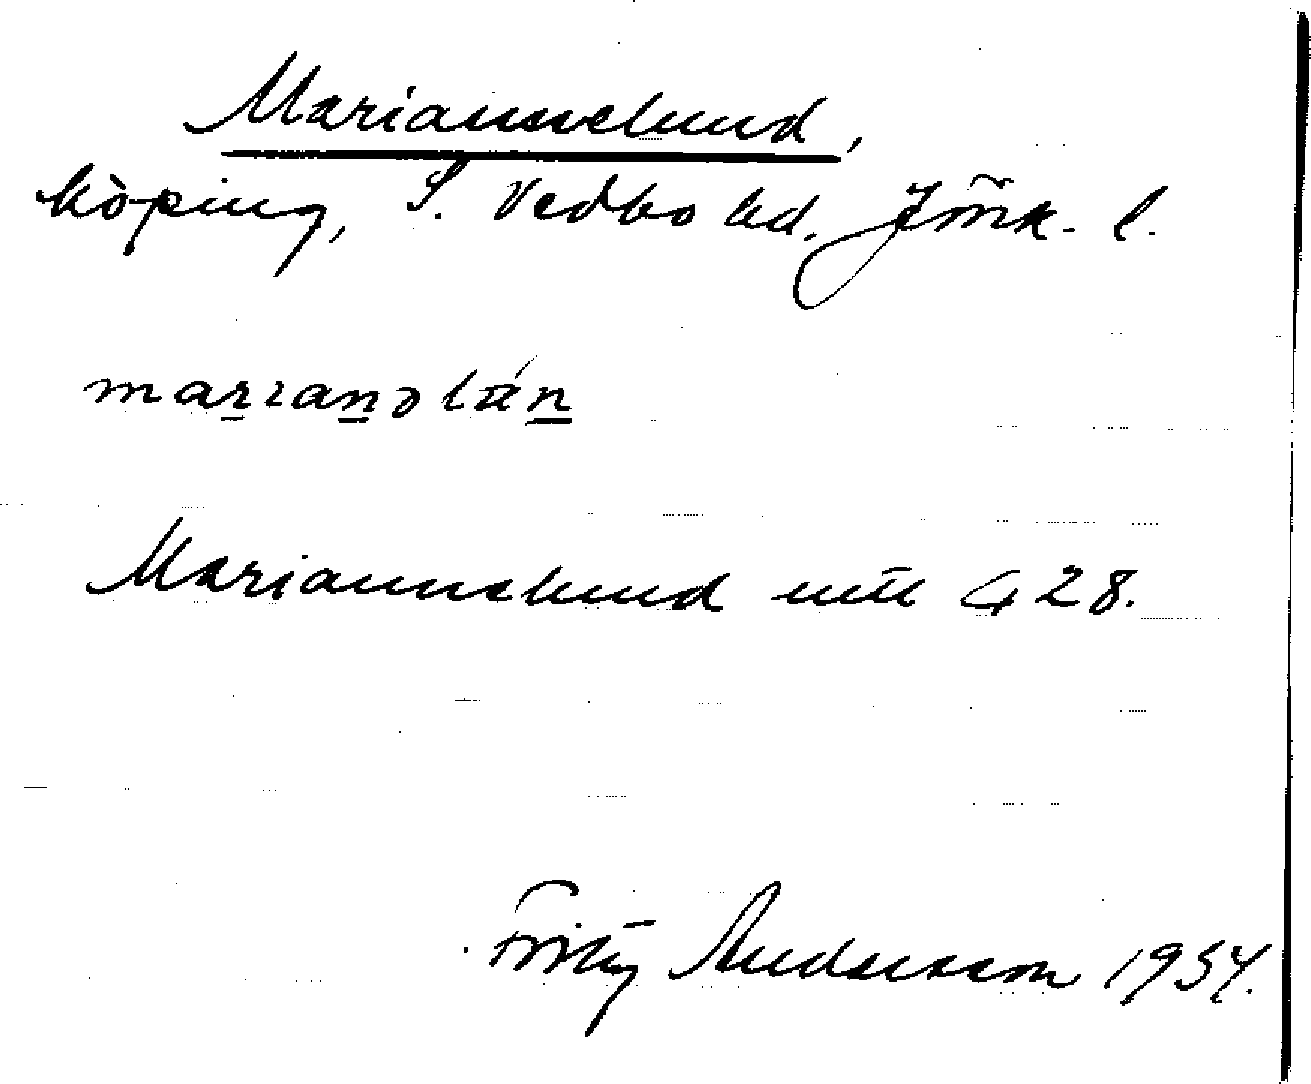 Mariannelund,
köping, S. Vedbo hd. Jönk. l.
Mariannelund
428.
Fritz Andersson 1934.